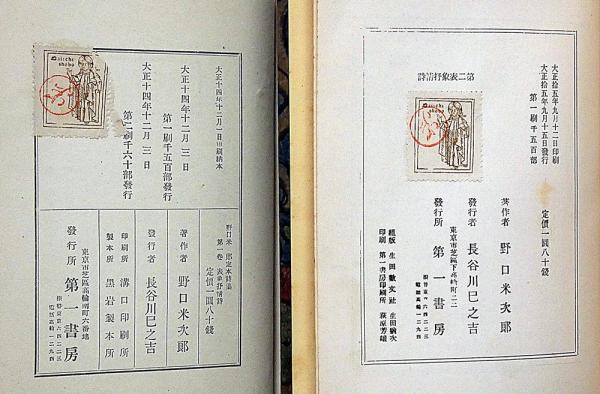 大正十四年十二月一日印刷納本
大正十四年十二月三日
第一刷千五百部發行
大正十四年十二月三日
第二刷千六十部發行
野口米次郎定本詩集
第一巻 表象抒情詩
定價一圓八十錢
著作者 野口米次郎
發行者 長谷川巳之吉
印刷所 溝口印刷所
製本所 黒岩製本所
東京市芝區高輪南町六番地
發行所 第一書房
振替東京六四二二三
電話高輪一二九四
aiichi
shobo
大正拾五年九月十二日印刷
大正拾五年九月十五日發行
第一刷千五百部
定價一圓八十錢
第二表象抒情詩
著作者 野口米次郎
發行者 長谷川巳之吉
發行所 第一書房
振替東京六四二二三
電話高輪一二九四
印刷 第一書房印刷所 萩原芳雄
aiichi
shobo